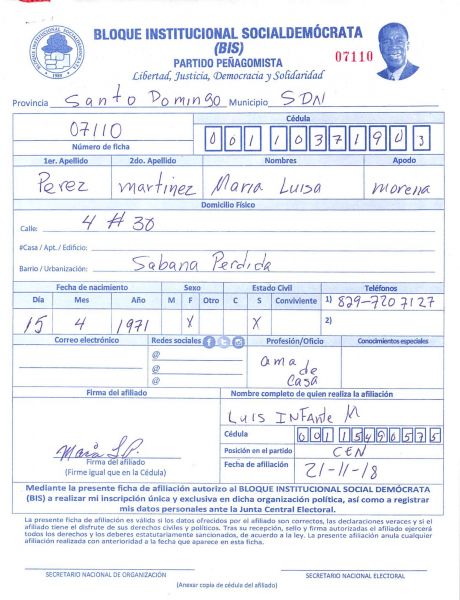 BLOQUE INSTITUCIONAL SOCIALDEMÓCRATA
(BIS)
PARTIDO PEÑAGOMISTA
Libertad, Justicia, Democracia y Solidaridad
07110
Provincia Santo Domingo Municipio SDN
07110
Número de ficha
Cédula
00110371903
1er. Apellido 2do. Apellido Nombres Apodo
Perez martinez Maria Luisa morena
Domicilio Físico
Calle: 4 # 30
#Casa / Apt. / Edificio:
Barrio / Urbanización: Sabana Perdida
Fecha de nacimiento Sexo Estado Civil Teléfonos
Día Mes Año M F Otro C S Conviviente 1) 829-720 7127
15 4 1971 X X 2)
Correo electrónico Redes sociales Profesión/Oficio Conocimientos especiales
@
@
@
ama de casa
Firma del afiliado Nombre completo de quien realiza la afiliación
Luis INFante M
Cédula 00115490575
Posición en el partido CEN
Fecha de afiliación 21-11-18
Firma del afiliado
(Firme igual que en la Cédula)
Mediante la presente ficha de afiliación autorizo al BLOQUE INSTITUCIONAL SOCIAL DEMÓCRATA
(BIS) a realizar mi inscripción única y exclusiva en dicha organización política, así como a registrar
mis datos personales ante la Junta Central Electoral.
La presente ficha de afiliación es válida si los datos ofrecidos por el afiliado son correctos, las declaraciones veraces y si el
afiliado tiene el disfrute de sus derechos civiles y políticos. Tras su recepción, sello y firma autorizadas el afiliado ejercerá
todos los derechos y los deberes estatutariamente sancionados, de acuerdo a la ley. La presente afiliación anula cualquier
afiliación realizada con anterioridad a la fecha que aparece en esta ficha.
SECRETARIO NACIONAL DE ORGANIZACIÓN SECRETARIO NACIONAL ELECTORAL
(Anexar copia de cédula del afiliado)